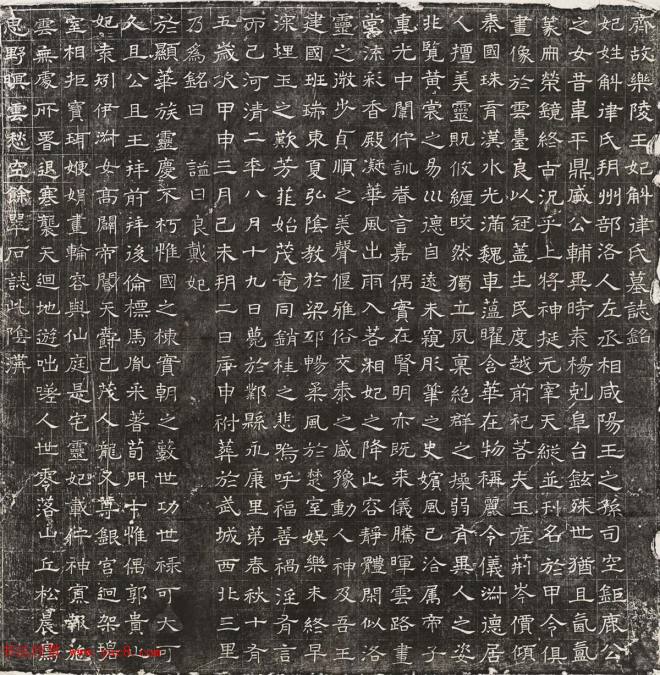 齊故樂陵王妃斛律氏墓誌銘
妃姓斛律氏朔州部洛人左丞相咸陽王之孫司空鉅鹿公
之女昔韋平鼎盛公輔異時袁楊剋阜台鉉殊世猶且氤氳
篆冊榮鏡終古況乎上將神挺元宰天縱並刊名於甲令俱
畫像於雲臺良以冠蓋生民度越前祀若夫玉產荊岑價傾
秦國珠育漢水光滿魏車蘊曜含華在物稱麗令儀淑德居
人擅美靈貺攸纏皎然獨立夙稟絕群之操弱有異人之姿
北覽黃裳之易川德自遠未窺彤筆之史嬪風已洽属帝子
重光中闈佇訓眷言嘉偶實在賢明亦既来儀騰暉雲路晝
裳流彩香殿凝華風出雨入若湘妃之降止容靜體閑似洛
靈之微步貞順之美聲偃雅俗交泰之盛豫動人神及吾王
建國班瑞東夏弘陰教於梁邸暢柔風於楚室娛樂未終早
深埋玉之歎芳菲始茂奄同銷桂之悲嗚呼福善禍淫有言
而已河清二年八月十九日薨於鄴縣永康里第春秋十有
五歲次甲申三月己未朔二日庚申祔葬於武城西北三里
乃為銘曰 謚曰良戴妃
於顯華族靈慶不朽惟國之棟實朝之藪世功世禄可大可
久且公且王祥前祥後倫標馬胤采著荀門才惟偶郭貴
妃袁矧伊淑女高闢帝閽天爵已茂人龍又尊銀宮迥架瑤
室相拒寶珥嬛娟畫輪容與仙庭是宅靈妃載佇神寡報施
雲無處所暑退寒襲天迴地遊咄嗟人世零落山丘松晨鳥
思野暝雲愁空餘翠石誌此陰溝
www.yac8.com